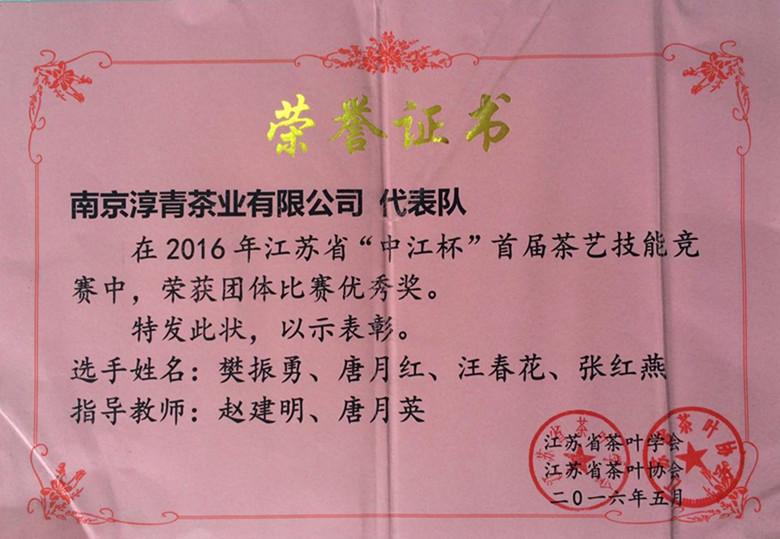 荣誉证书
南京淳青茶业有限公司 代表队
在2016年江苏省“中江杯”首届茶艺技能竞
赛中，荣获团体比赛优秀奖。
特发此状，以示表彰。
选手姓名：樊振勇、唐月红、汪春花、张红燕
指导教师：赵建明、唐月英
江苏省茶叶学会
江苏省茶叶协会
二〇一六年五月